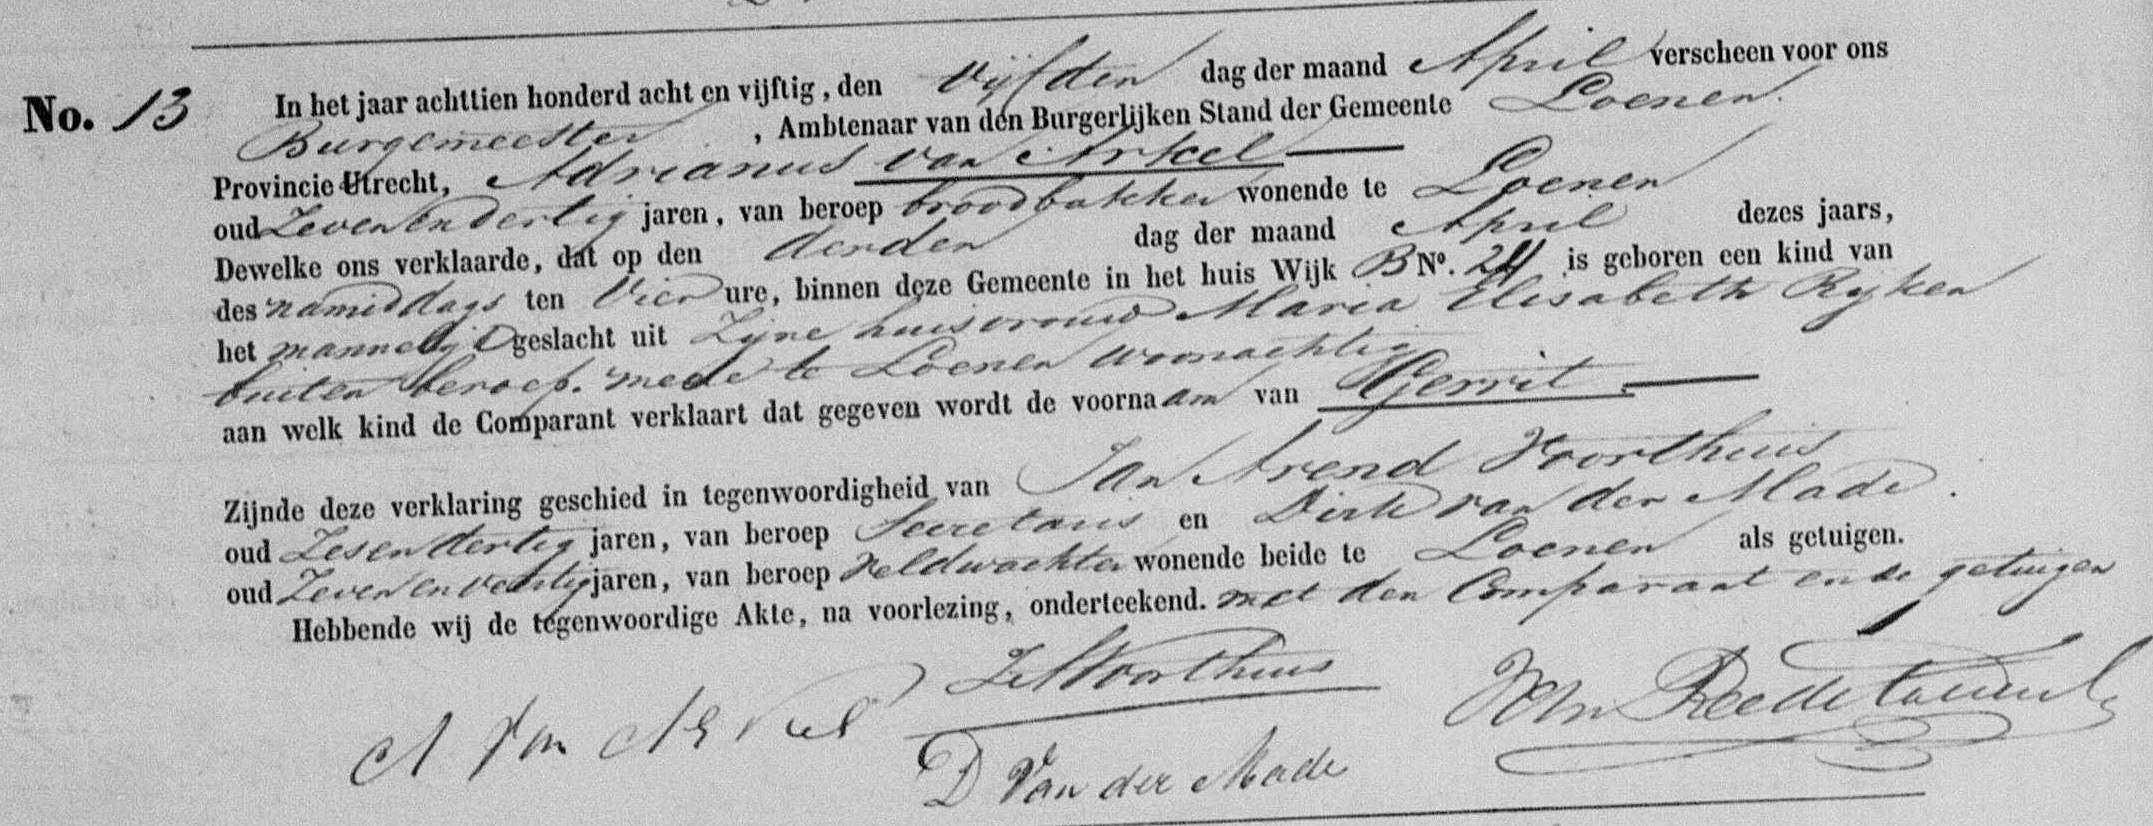 No. 13 In het jaar achttien honderd acht en vijftig, den vijfden dag der maand April verscheen voor ons
Burgemeester, Ambtenaar van den Burgerlijken Stand der Gemeente Loenen.
Provincie Utrecht, Adrianus van Arkel
oud Zevenendertig jaren, van beroep broodbakker wonende te Loenen
Dewelke ons verklaarde, dat op den derden dag der maand April dezes jaars,
des namiddags ten Vier ure, binnen deze Gemeente in het huis Wijk B No. 24 is geboren een kind van
het mannelijk geslacht uit Zijne huisvrouw Maria Elisabeth Ryken
buiten beroep. mede te Loenen woonachtig
aan welk kind de Comparant verklaart dat gegeven wordt de voornaam van Gerrit
Zijnde deze verklaring geschied in tegenwoordigheid van Jan Arend Voorthuis
oud Zesendertig jaren, van beroep Secretaris en Dirk van der Made.
oud jaren, van beroep Veldwachter wonende beide te Loenen als getuigen.
Hebbende wij de tegenwoordige Akte, na voorlezing, onderteekend. met den Comparant en de getuigen
A van Arkel
Voorthuis
D Van der Made